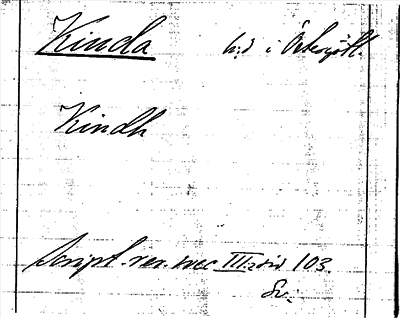 Kinda h:d i Östergötl.
Kindh
Script. rer. svec III:2 sid 103.
Sv: